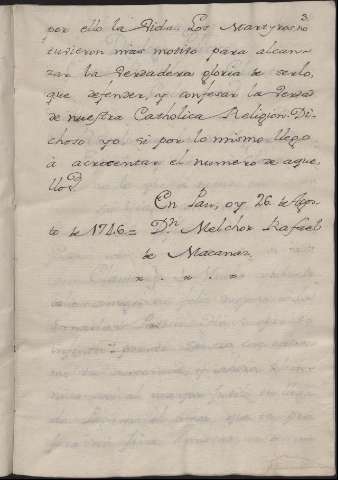 3
por ello la Vida. Los Martyres no
tuvieron más motivo para alcan-
zar la verdadera gloria de serlo,
que defender, y confesar la Verdad
de nuestra Catholica Religion. Di-
choso yo! si por lo mismo llego
à acrecentar el numero de aque-
llos
En Pau, oy 26. de Agos-
to de 1746 = Dn Melchor Rafael
de Macanaz